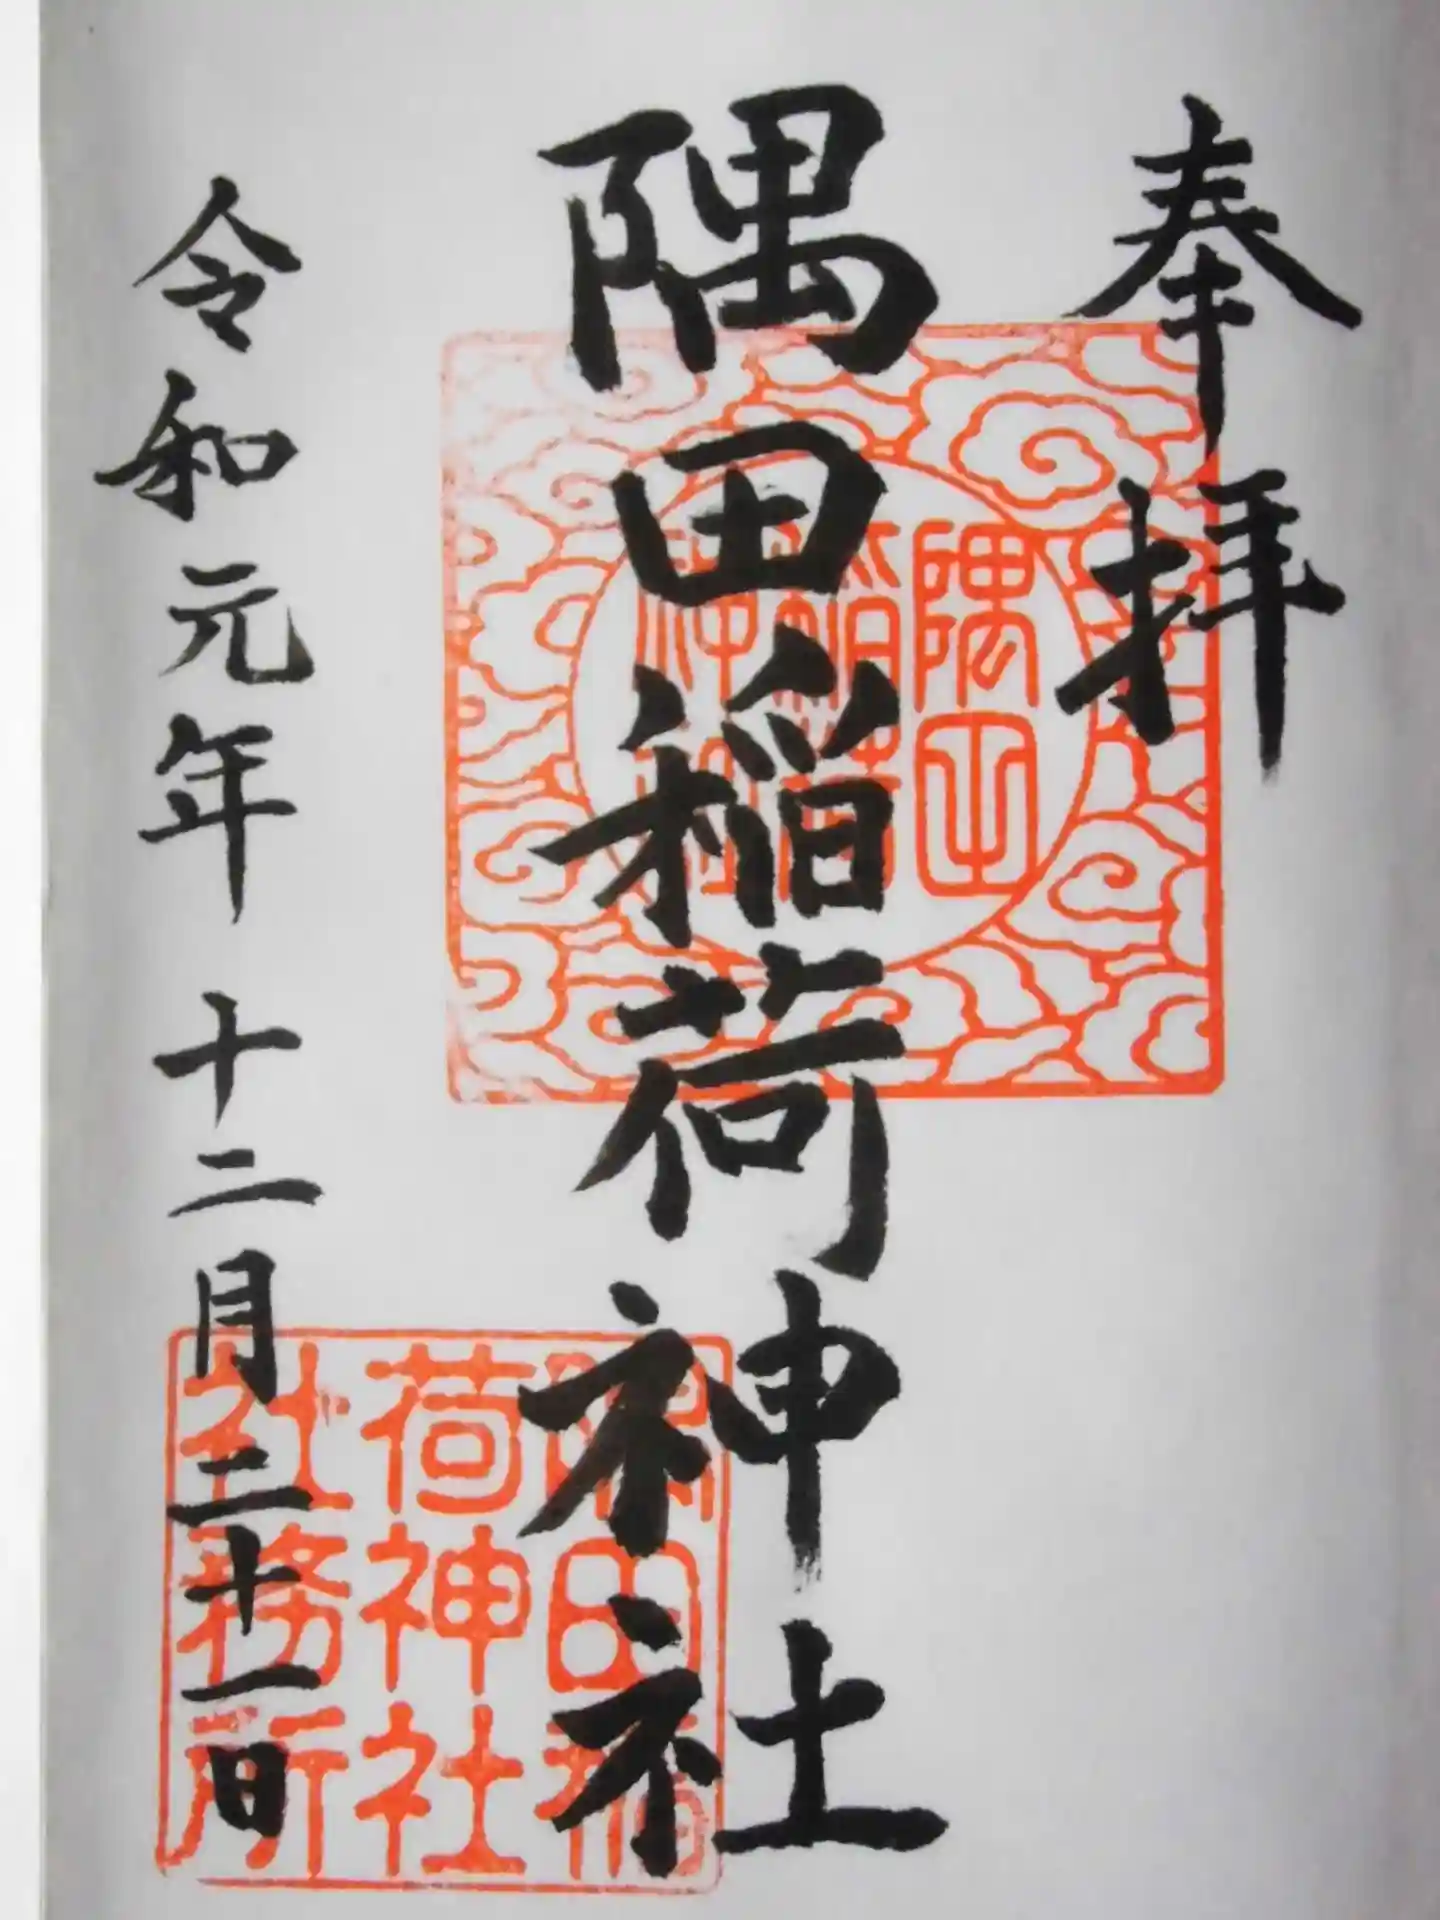 奉拝
隅田稲荷神社
令和元年 十二月二十一日
隅田
稲荷
神社
隅田稲
荷神社
社務所